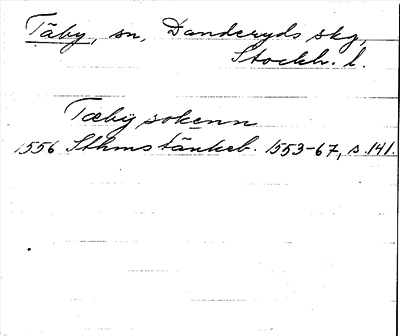 Täby, sn, Danderyds skg,
Stockh. l.
Tæby sokenn
1556 Sthms tänkeb. 1553-67, s. 141.